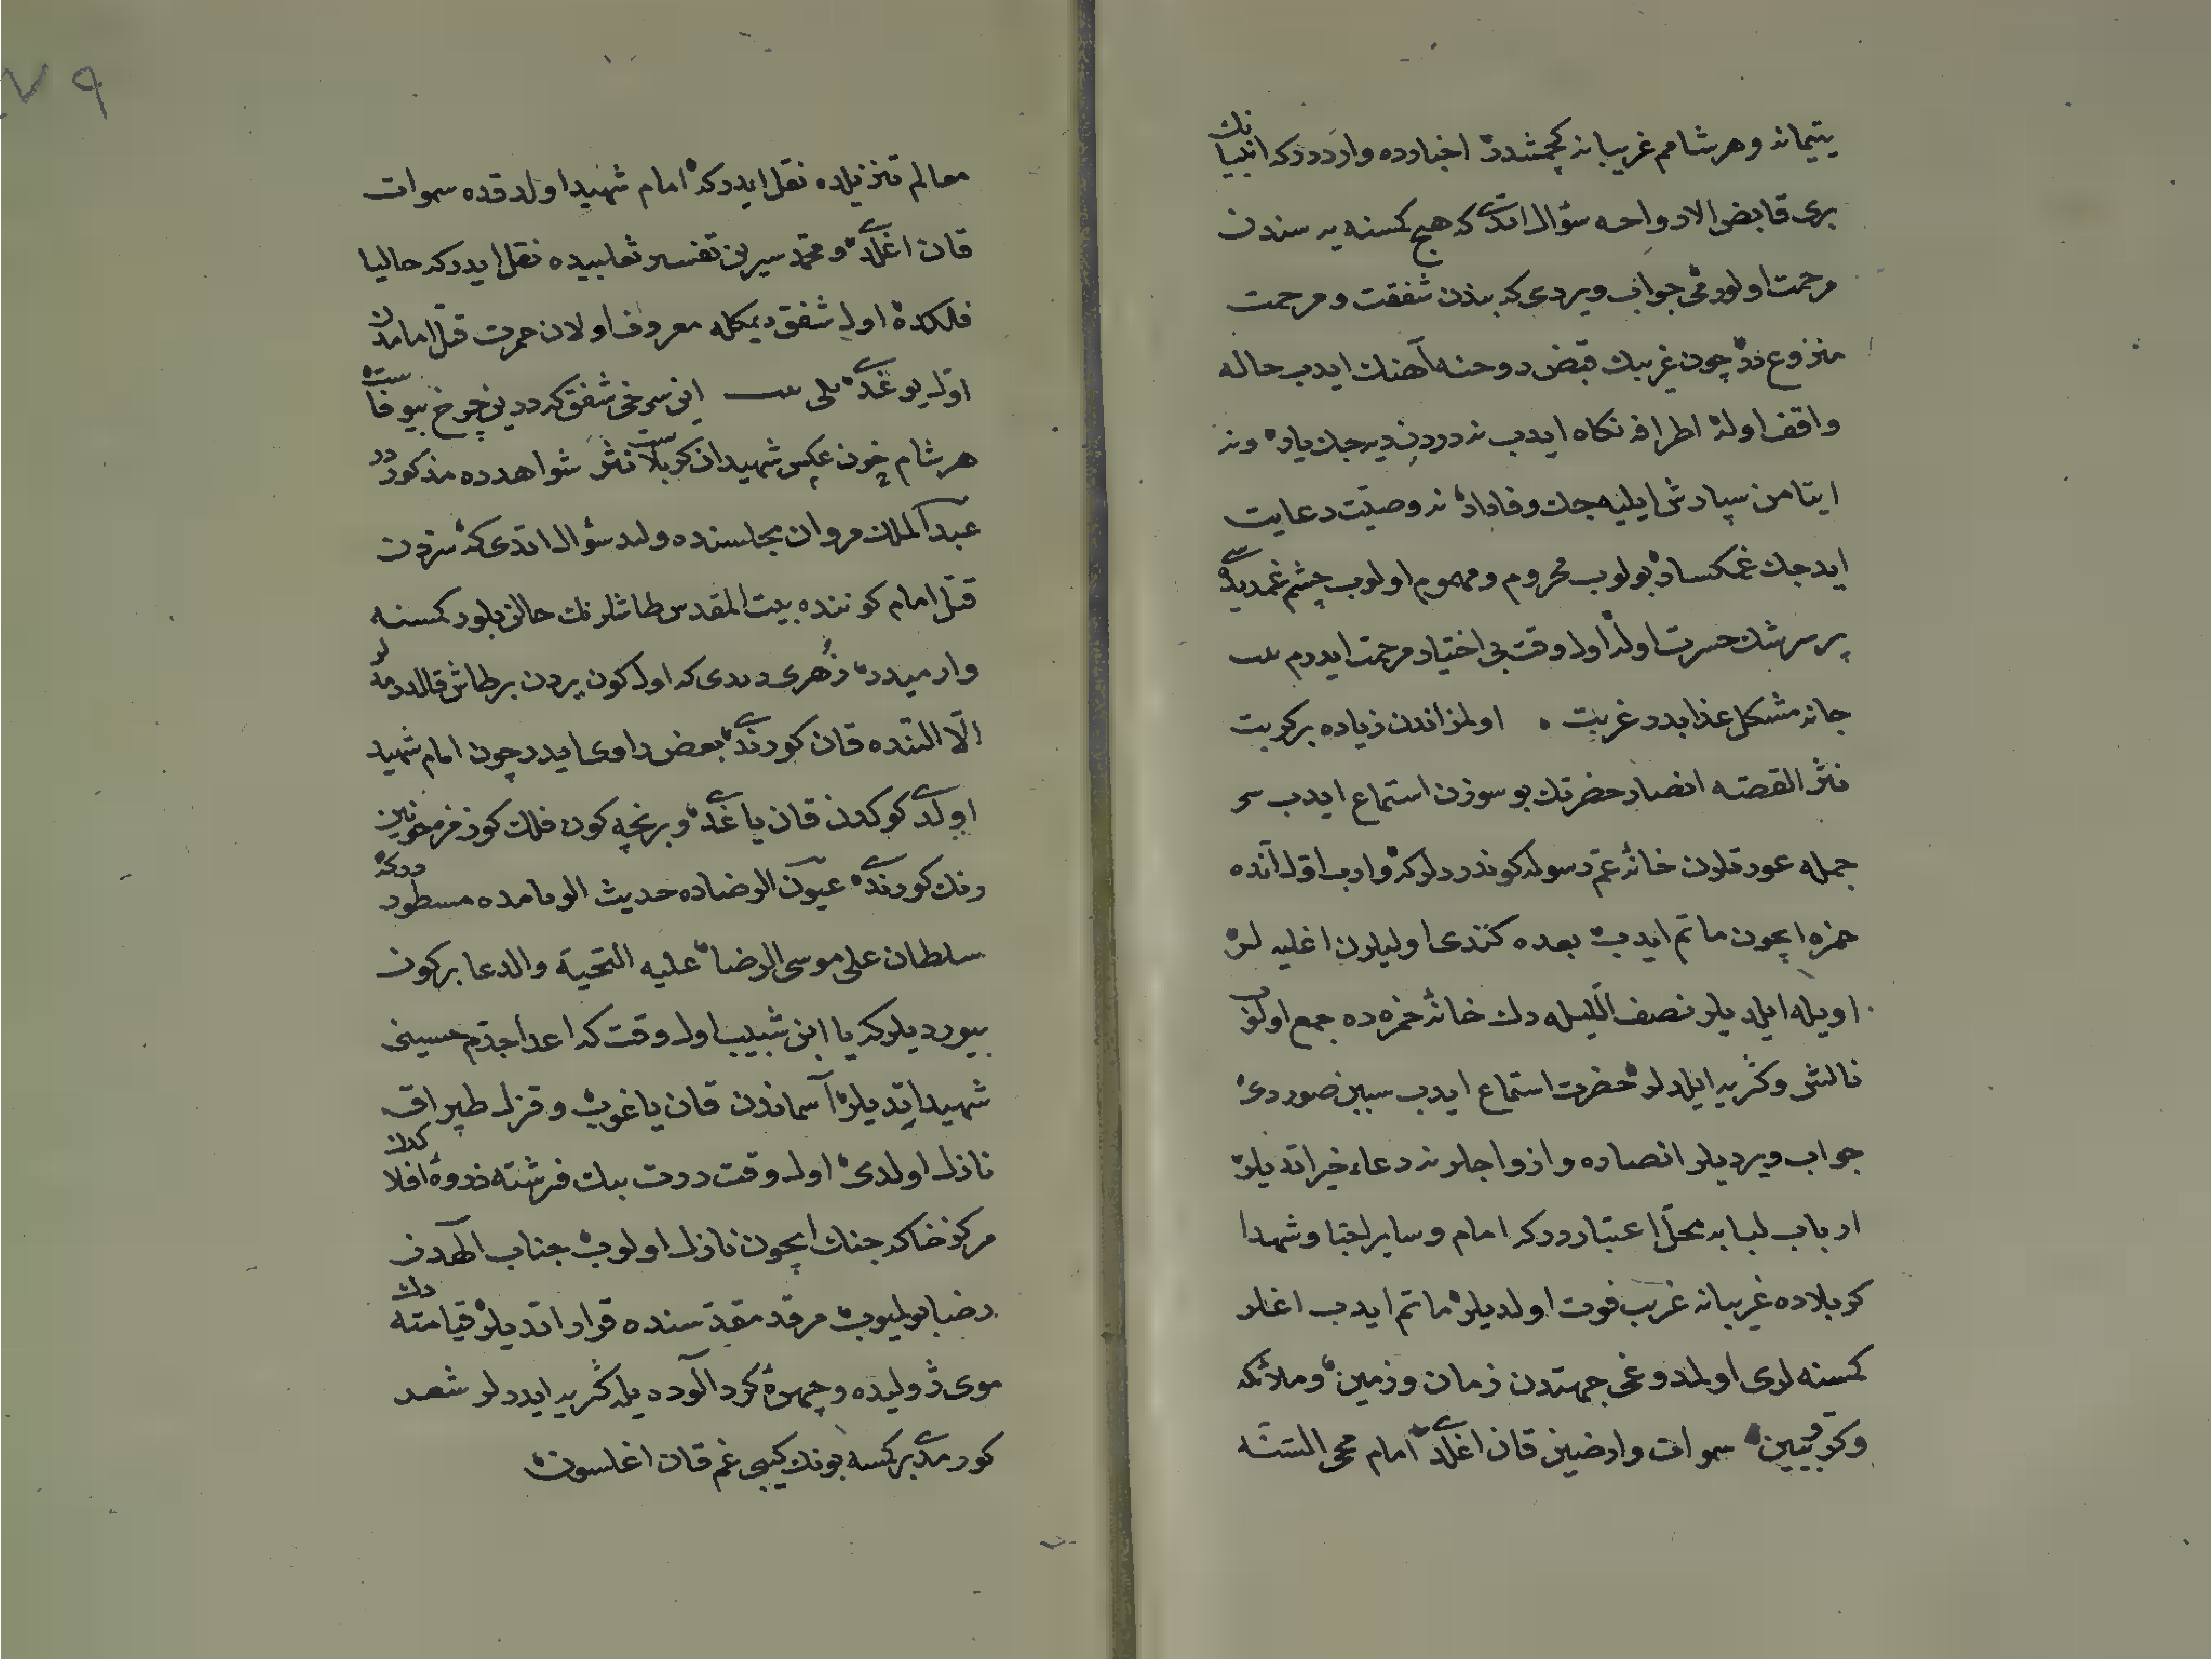 يتيمانه وهر شامم غريبانه كچمشدر اخبارده وارددركه انبيانك
بری قابض الارواحه سؤال اتدی كه هيچ كمسنه يه سندن
مرحمت اولورمی جواب ويردی كه بندن شفقت ومرحمت
منزوع در چون غريبك قبض روحنه آهنك ايدب حاله
واقف اولر اطرافه نكاه ايدب نه دردين ديه جك يار ونه
ايتامن سپارش ايليه جك وفادار نه وصيت رعايت
ايدجك غمكسار بولوب محروم ومهموم اولوب چشم غمديده سی
پر سرشك حسرت اولر اول وقت بی اختيار مرحمت ايدرم بيت
جانه مشكل عذابدر غربت ه اولمز اندن زياده بر كربت
نثر القصه انصار حضرتك بو سوزن استماع ايدب
جمله عورتلرن خانهٔ عم رسوله كوندرديلر كه وارب اول آنده
حمزه ايچون ماتم ايدب بعده كندی اوليلرن اغليه لر
اويله ايلديلر نصف الليله دك خانهٔ حمزه ده جمع اولنوب
نالش وكريه ايلديلر حضرت استماع ايدب سببن صوردی
جواب ويرديلر انصاره وازواجلرنه دعاء خير اتديلر
ارباب لبابه محل اعتباردركه امام وساير احبا وشهدا
كربلاده غريبانه غريب فوت اولديلر ماتم ايدب اغلر
كمسنه لری اولمدوغی جهتدن زمان وزمين وملائكه
وكروبيين سموات وارضين قان اغلدی امام محی السنه
٧٩
معالم تنزيلده نقل ايدركه امام شهيد اولدقده سموات
قان اغلدی ومحمد سيرين تفسير ثعلبيده نقل ايدركه حاليا
فلكده اول شفق ديمكله معروف اولان حمرت قتل امامدن
اول يوغدی بلی بيت اين سرخی شفق كه درين چرخ بيوفاست
هر شام خون عكس شهيدان كربلاست نثر شواهدده مذكوردر
عبد الملك مروان مجلسنده وليد سؤال اتدی كه سزدن
قتل امام كوننده بيت المقدس طاشلرنك حالن بلور كمسنه
وارميدر زهری ديدی كه اول كون يردن بر طاش قالدرمدلر
الا التنده قان كورندی بعض راوی ايدر چون امام شهيد
اولدی كوكدن قان ياغدی وبر نچه كون فلك كوزمزه خونين
رنك كورندی عيون الرضاده حديث الرمامده مسطوردركه
سلطان علی موسی الرضا عليه التحية والدعا بر كون
بيورديلر كه يا ابن شبيب اول وقت كه اعدا جدم حسينی
شهيد اتديلر آسماندن قان ياغوب وقزل طپراق
نازل اولدی اول وقت درت بيك فرشته ذروهٔ افلاكدن
مركز خاكه جنك ايچون نازل اولوب جناب الهدن
رضا بولميوب مرقد مقدسنده قرار اتديلر قيامته دك
موی ژوليده وچهرهٔ كرد آلوده يله كريه ايدرلر شعر
كورمدی بر كسه بونك كيبی غم قان اغلسون